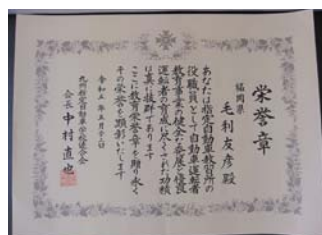 栄誉章
福岡県
毛利友彦殿
あなたは指定自動車教習所の
役職員として自動車運転者
教育事業の健全な発展と優良
運転者の育成に尽くされた功績
は真に抜群であります
ここに教育栄誉章を贈り永く
その栄誉を顕彰いたします
令和五年五月十二日
九州指定自動車学校連合会
会長 中村直也